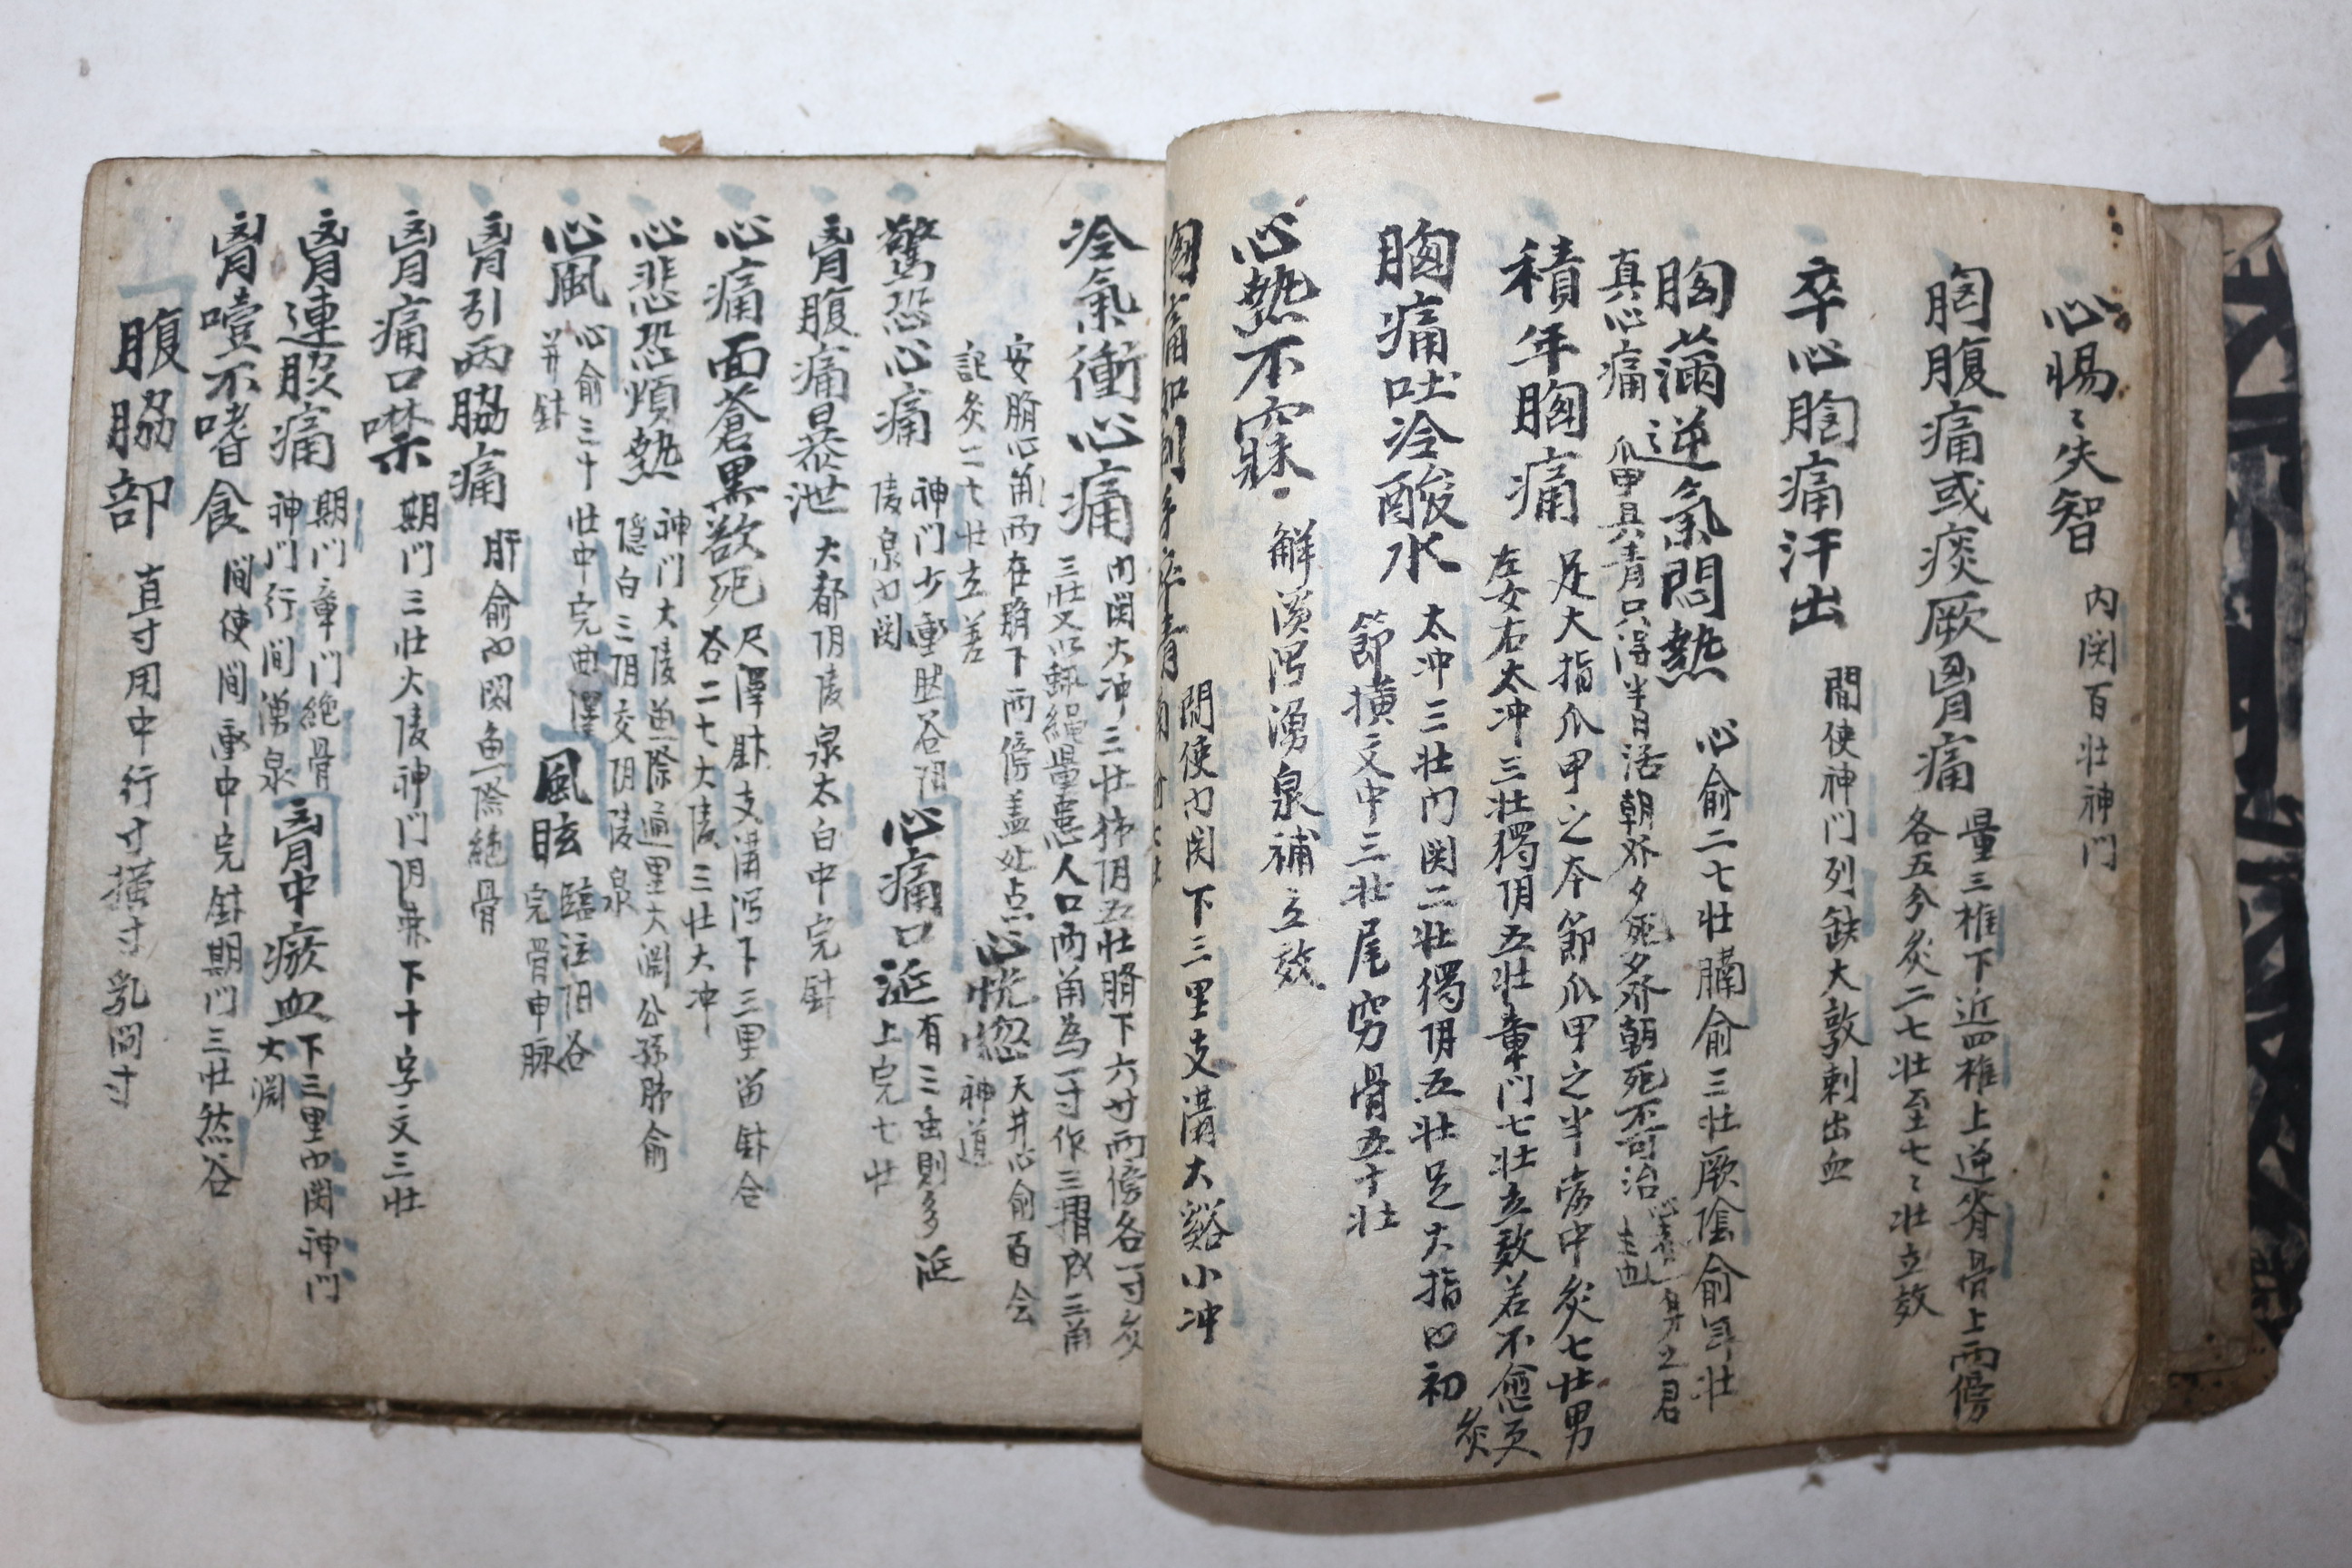 心惕〻失智 内関百壮神門
胸腹痛或痰厥胷痛 量三椎下近四椎上逆脊骨上両傍
各五分灸二七壮至七〻壮立效
卒心胸痛汗出 間使神门列缺大敦刺出血
胸滿逆氣悶熱 心俞二七壮膈俞三壮厥陰俞年壮
真心痛 爪甲具青只得半日活朝發夕死夕發朝死不可治 心者一身之君主也
積年胸痛 足大指爪甲之本節爪甲之半當中灸七壮男
左女右太冲三壮獨阴五壮章门七壮立效若不愈更灸
胸痛吐冷酸水 太冲三壮内関二壮獨阴五壮足大指内初
節橫文中三壮尾穷骨五十壮
心熱不寐 解溪泻湧泉補立效
間使内関下三里支溝大谿小冲
冷氣衝心痛 内関大冲三壮独阴五壮臍下六寸両傍各一寸灸
三壮又以蜘繩量患人口両角為一寸作三摺成三角
安臍心角両在臍下両傍盡处点
記灸二七壮立差
心恍惚 天井心俞百会
神道
驚恐心痛 神门少衝然谷阴
陵泉内関
心痛口涎 有三虫則多涎
上完七壮
胷腹痛暴泄 大都阴陵泉太白中完針
心痛面蒼黒欲死 尺澤針支溝泻下三里留針合
谷二七大陵三壮大冲
心悲恐煩熱 神门大陵鱼際通里大渊公孫肺俞
隠白三阴交阴陵泉
心風 心俞三十壮中完曲澤
并針
風眩 臨泣阳谷
完骨申脉
胷引両脇痛 肝俞内関鱼際絶骨
胷痛口噤 期门三壮大陵神门阴乗下十字文三壮
胷連胁痛 期门章门絶骨
神门行間湧泉
胷中瘀血 下三里内関神门
大渊
胷噎不嗜食 間使間衝中完針期门三壮然谷
腹脇部 直寸用中行寸橫寸乳间寸